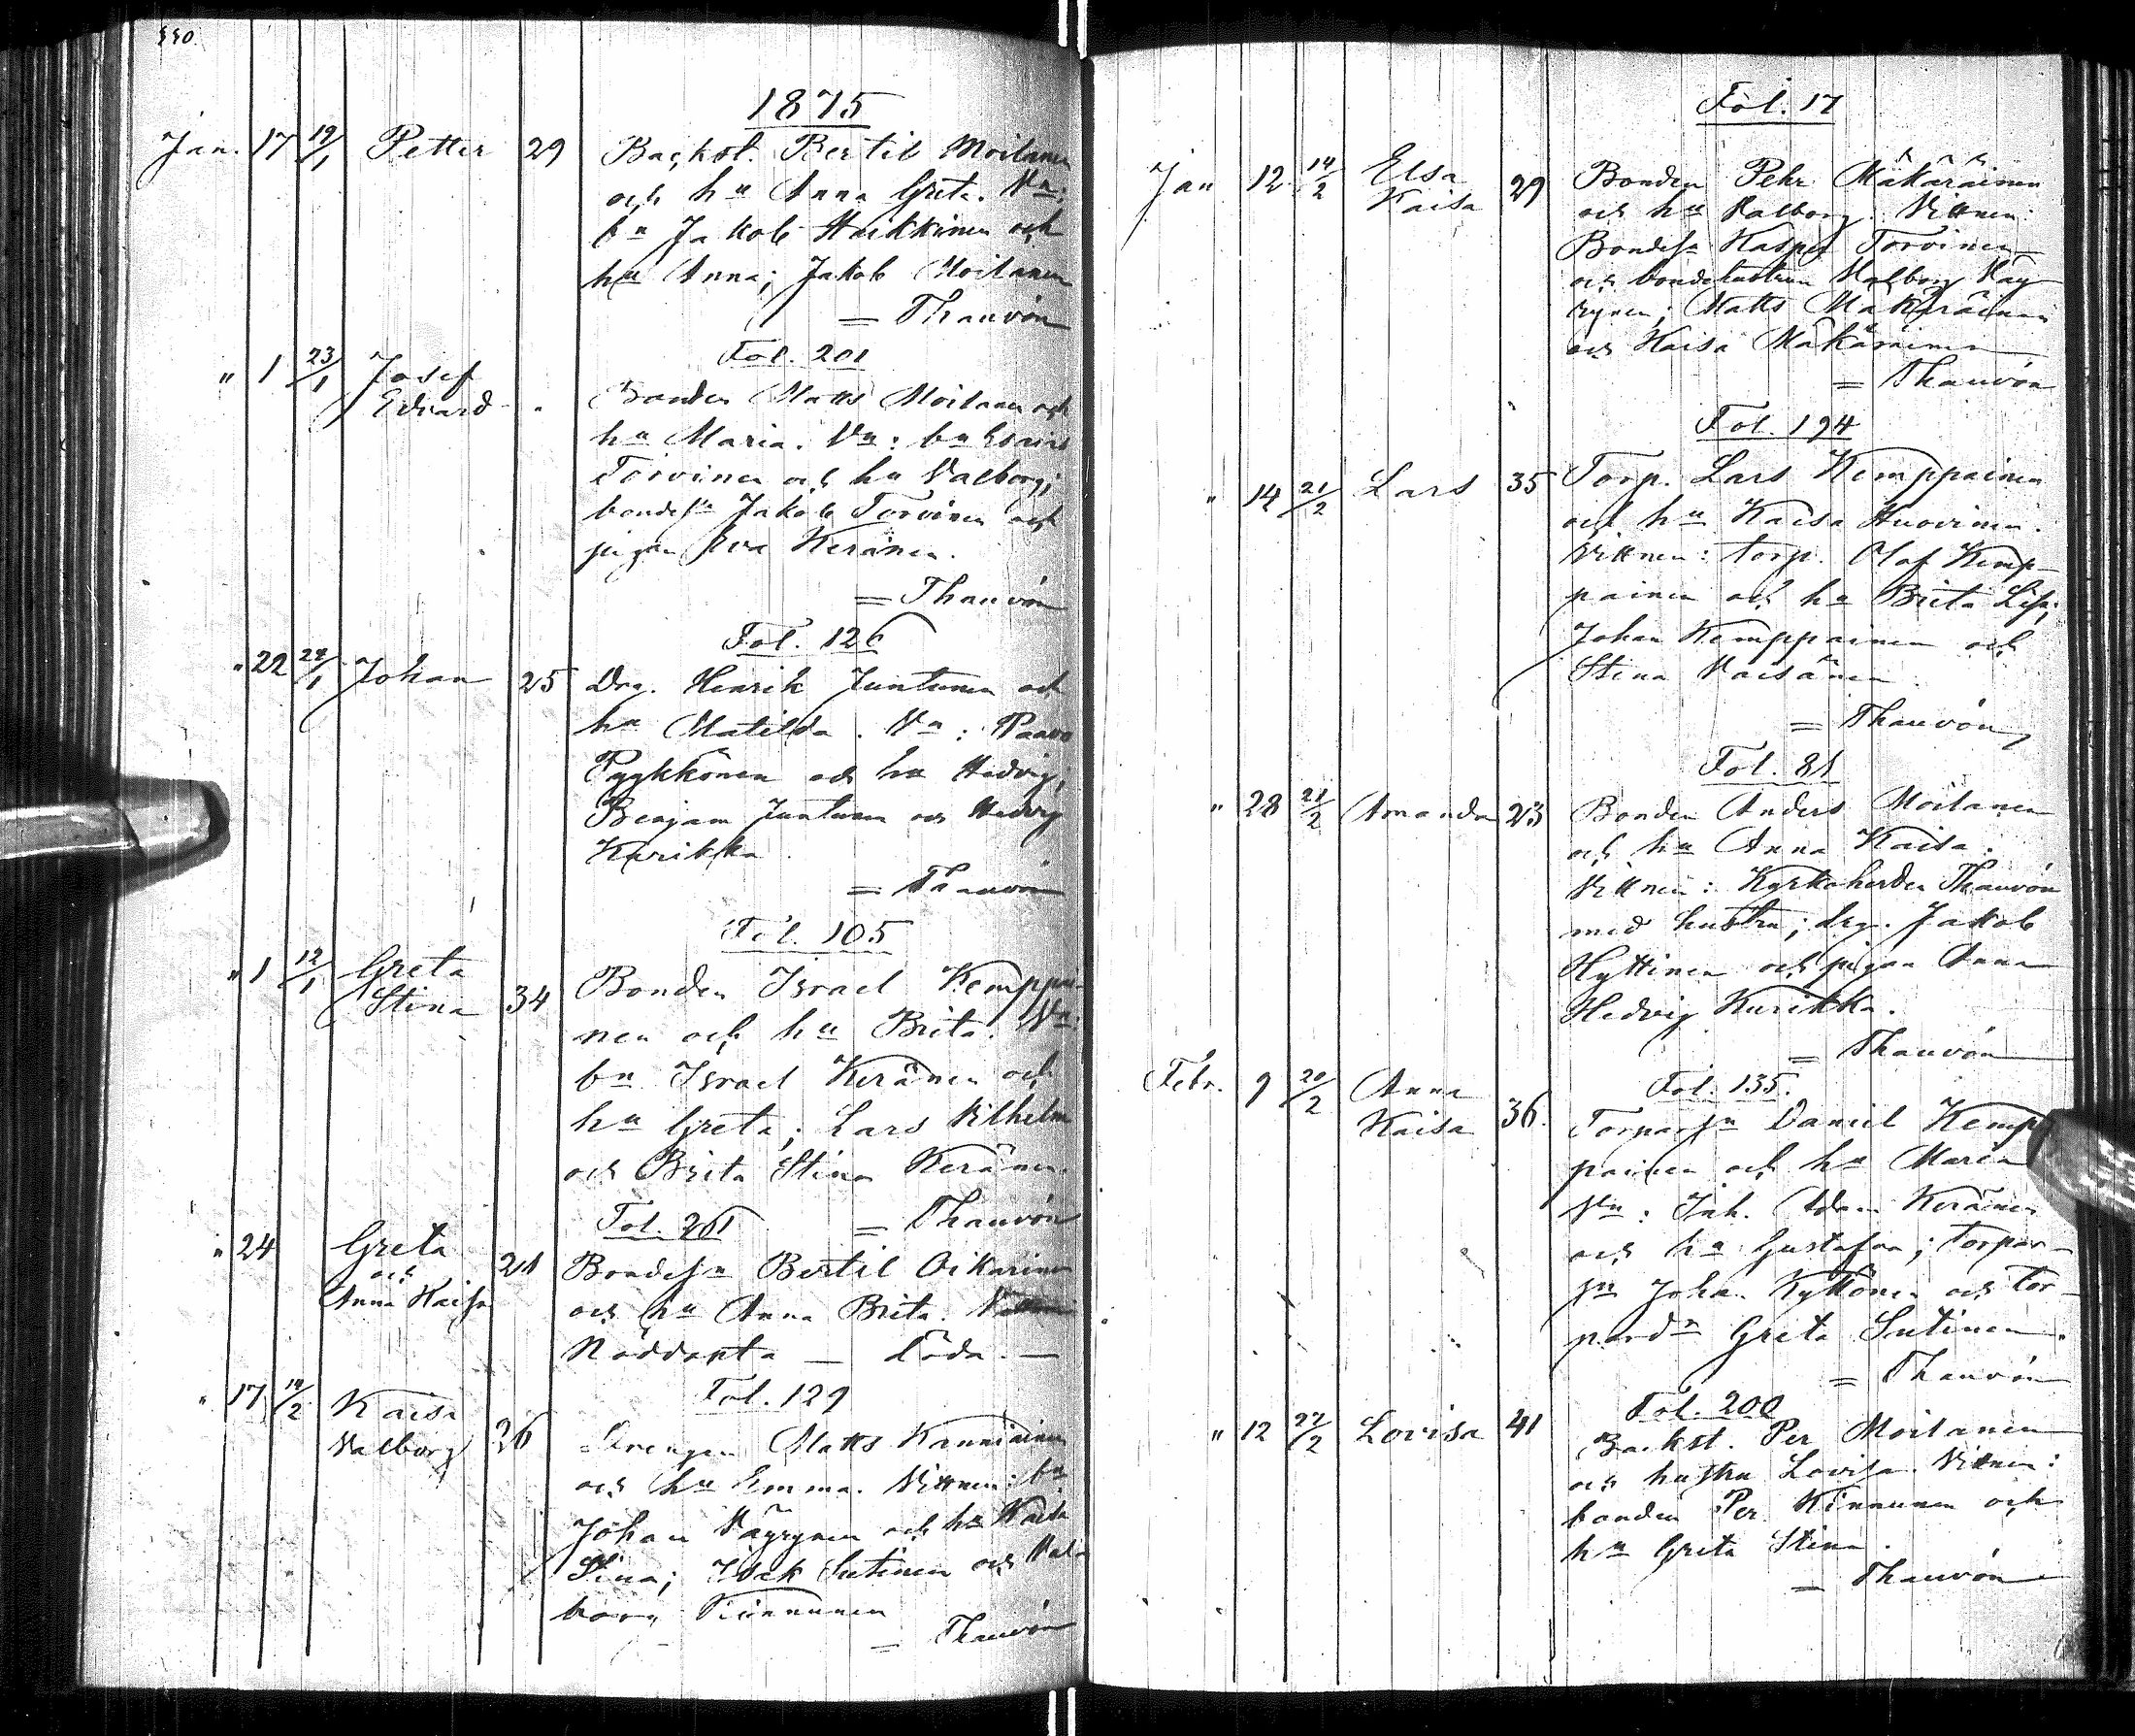 550
1875
Jan. 17 19/1 Petter 29 Backst. Bertil Moilanen
och hu Anna Greta. Vn:
bn Jakob Heikkinen och
hu Anna; Jakob Moilanen
= Thauvón
Fol. 201
" 1 23/1 Josef Bonden Matts Moilanen och
Edvard " hu Maria. Vn: bn Esaias
Torvinen och hu Valborg;
bondesn Jakob Torvinen och
pigan Eva Keränen.
= Thauvón
Fol. 126
" 22 24/1 Johan 25 Drg. Henrik Juntunen och
hu Matilda. Vn: Paavo
Pyykkönen och hu Hedvig;
Benjam Juntunen och Hedvig
Kurikka
= Thauvón
Fol. 105
" 1 12/1 Greta
Stina 34 Bonden Israel Kemppai-
nen och hu Brita. Vn:
bn Israel Keränen och
hu Greta; Lars Vilhelm
och Brita Stina Keränen.
Fol. 261 = Thauvón
" 24 Greta
och
Anna Kaisa 21 Bondesn Bertil Oikarinen
och hu Anna Brita.
Nöddöpta — döda. —
Fol. 129
" 17 14/2 Kaisa
Valborg 26 Drengen Matts Kanniainen
och hu Emma. Vittnen: bn
Johan Väyrynen och hu Kaisa
Stina; Isak Sutinen och Val-
borg Kinnunen
= Thauvón
Fol. 17
Jan 12 14/2 Elsa
Kaisa 29 Bonden Pehr Mäkäräinen
och hu Valborg. Vittnen:
Bondesn Kasper Torvinen
och bondehustrun Valborg Väy
rynen; Matts Mäkäräinen
och Kaisa Mäkäräinen
= Thauvón
Fol. 194
" 14 21/2 Lars 35 Torp. Lars Kemppainen
och hu Kaisa Huovinen.
Vittnen: torp. Olof Kemp-
painen och hu Brita Lisa;
Johan Kemppainen och
Stina Väisänen.
= Thauvón
Fol. 81
" 28 21/2 Amanda 23 Bonden Anders Moilanen
och hu Anna Kaisa.
Vittnen: Kyrkoherden Thauvón
med hustru; drg. Jakob
Hyttinen och pigan Anna
Hedvig Kurikka.
= Thauvón
Fol. 135.
Febr. 9 20/2 Anna
Kaisa 36. Torparsn Daniel Kemp
painen och hu Maria
Vn: Inh. Adam Keränen
och hu Gustafva; torpar-
sn Johan Kyllönen och tor-
pard:n Greta Sutinen.
= Thauvón
Fol. 200
" 12 27/2 Lovisa 41 Backst. Per Moilanen
och hustru Lovisa. Vittnen:
bonden Per Kinnunen och
hu Greta Stina.
= Thauvón